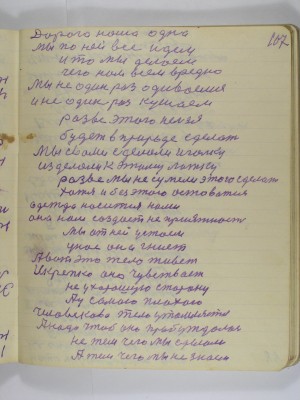 107
Дорога наша одна
Мы по ней все идем
и то мы делаем
чего нам всем вредно
Мы не один раз одиваемся
и не один раз кушаем
разве этого нельзя
будет в природе сделат
Мы сами сделали иголку
из делали к этому
разве мы не сумели этого сделат
Хотя и без этого
одежда носится нами
она нам создает не приятност
Мы от ней
она гниет
А вот это тело живет
Икрепко оно чуствеает
не ухорошую сторону
Ау самого плохого
Человеково тело утомляется
Анадо чтоб оно пробуждалос
не тем чего мы
Атем чего мы не знаем